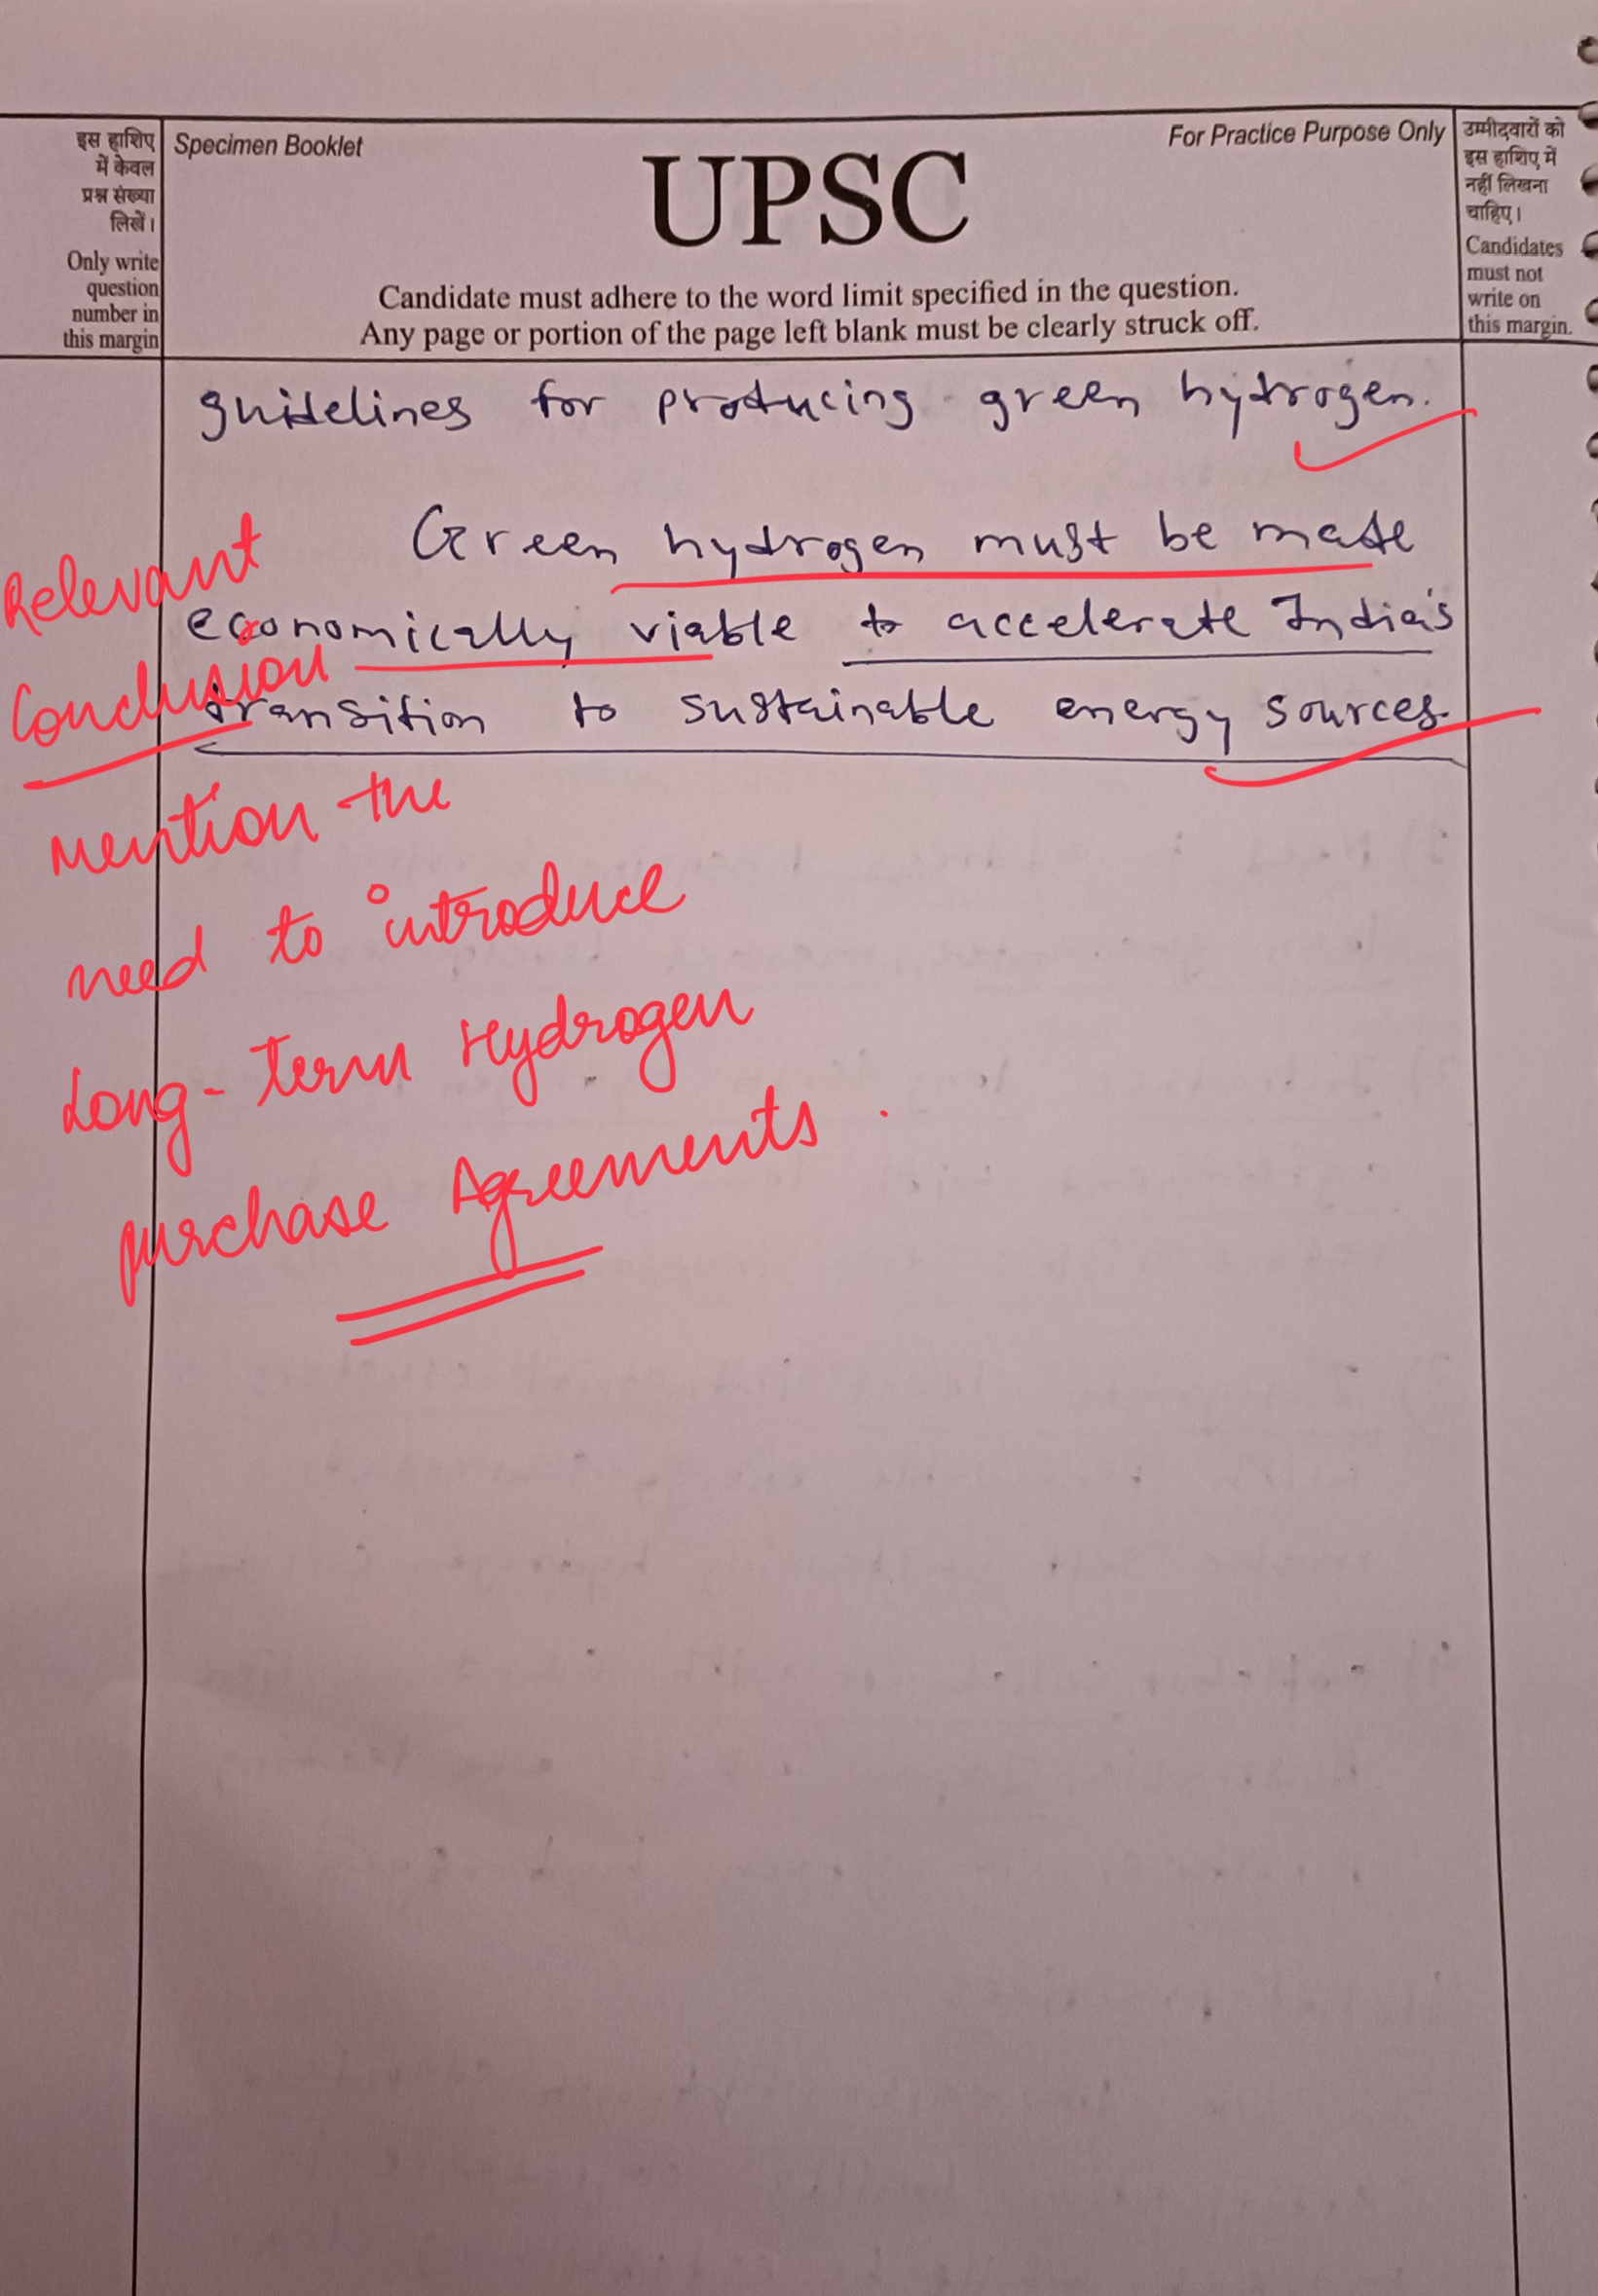 इस हाशिए
में केवल
प्रश्न संख्या
लिखें।
Only write
question
number in
this margin
Specimen Booklet
For Practice Purpose Only
UPSC
Candidate must adhere to the word limit specified in the question.
Any page or portion of the page left blank must be clearly struck off.
उम्मीदवारों को
इस हाशिए में
नहीं लिखना
चाहिए।
Candidates
must not
write on
this margin.
guidelines for producing green hydrogen.
Green hydrogen must be made
economically viable to accelerate India's
transition to sustainable energy sources.
Relevant
Conclusion
Mention the
need to introduce
Long-term Hydrogen
purchase Agreements.